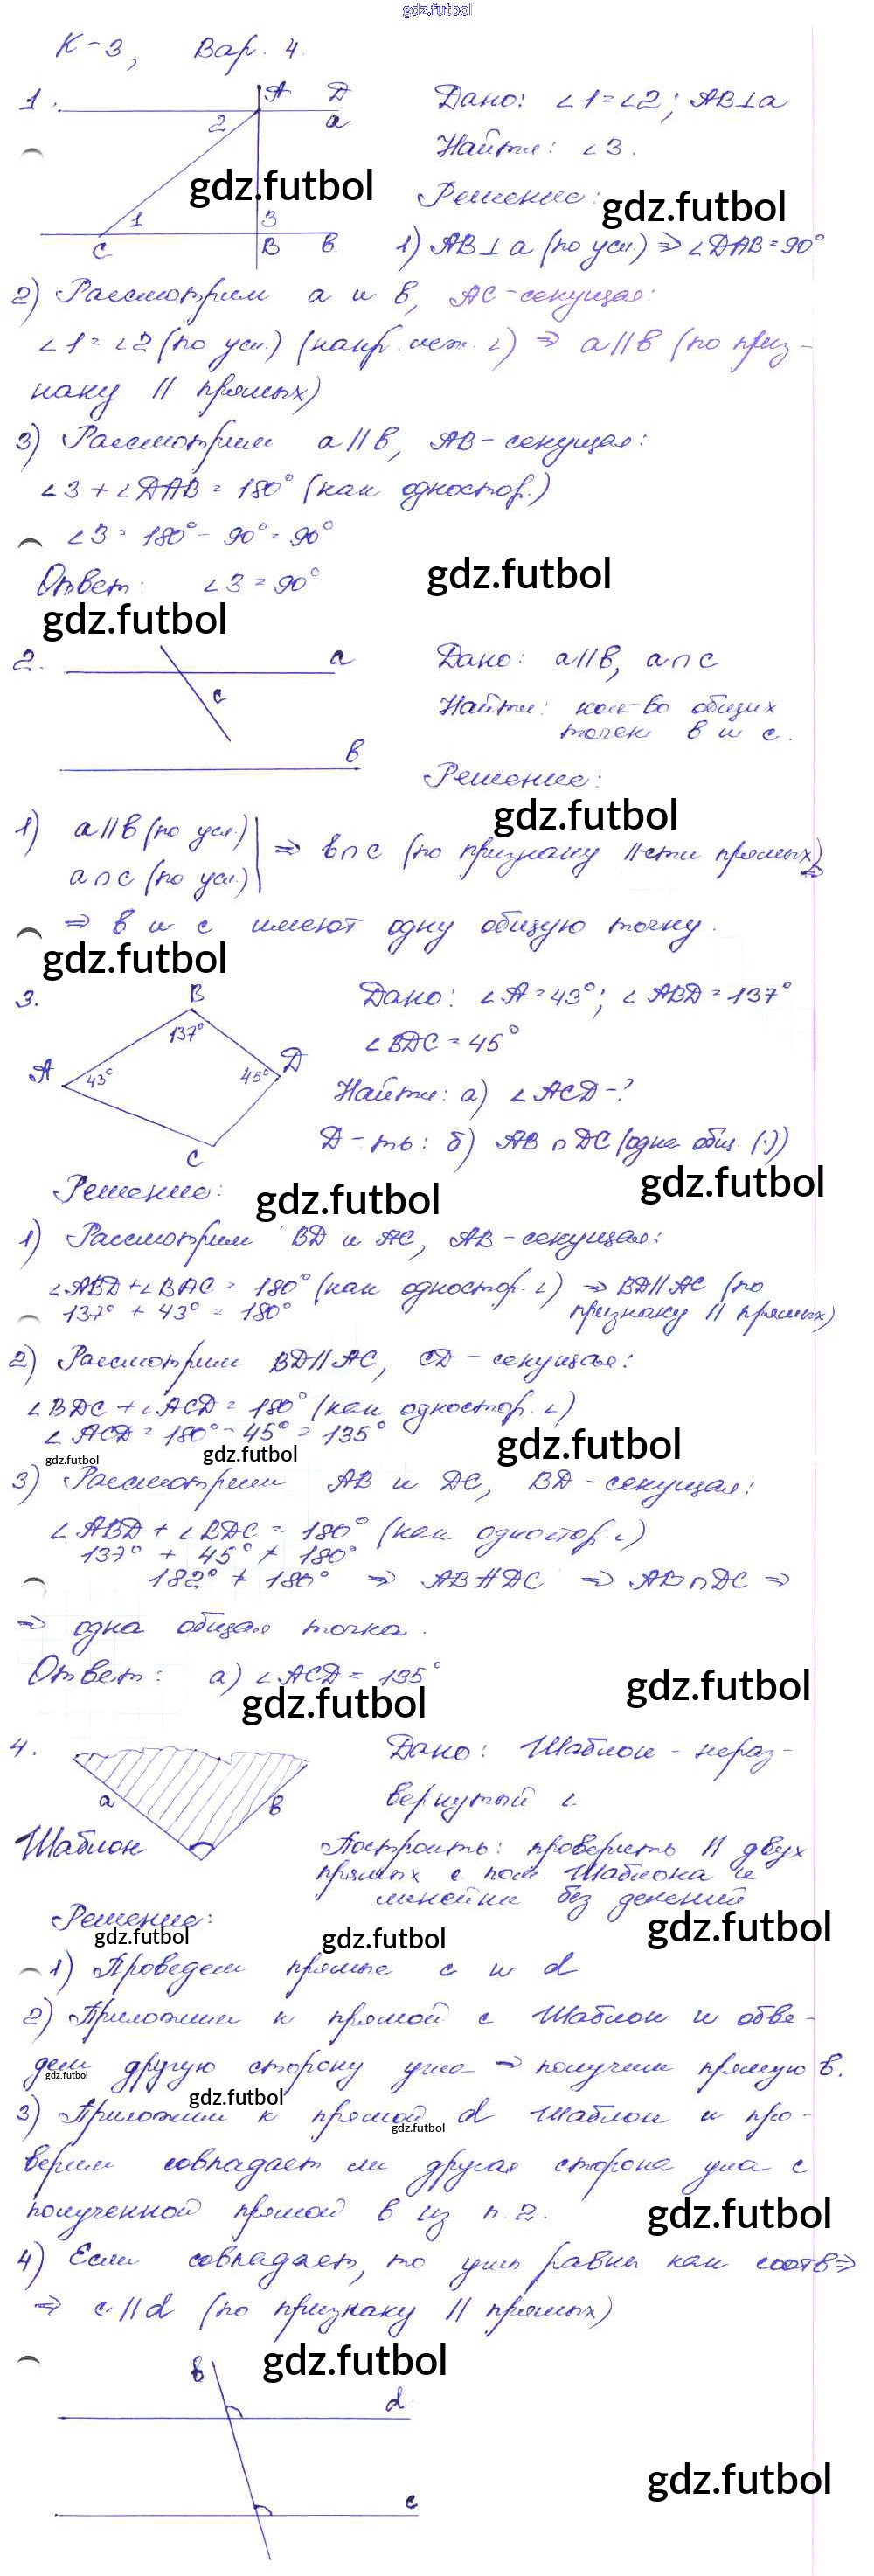 gdz.futbol
К-3, Вар. 4.
1.
A D
2 a
1 3
C B в
Дано: ∠1=∠2; AB⊥a
Найти: ∠3.
gdz.futbol
Решение:
gdz.futbol
1) AB⊥a (по усл.) ⇒ ∠DAB=90°
2) Рассмотрим a и в, AC-секущая:
∠1=∠2 (по усл.) (накр. леж. ∠) ⇒ a//в (по приз-
наку // прямых)
3) Рассмотрим a//в, AB-секущая:
∠3+∠DAB=180° (как одностор.)
∠3=180°-90°=90°
Ответ: ∠3=90°
gdz.futbol
gdz.futbol
2.
a
c
в
Дано: a//в, a∩c
Найти: кол-во общих
точек в и c.
Решение:
gdz.futbol
1) a//в (по усл.)
a∩c (по усл.)
⇒ в∩c (по признаку //сти прямых) ⇒
⇒ в и c имеют одну общую точку.
gdz.futbol
3.
B
137°
A 43° 45° D
C
Дано: ∠A=43°; ∠ABD=137°
∠BDC=45°
Найти: а) ∠ACD-?
Д-ть: б) AB∩DC (одна общ. (·))
gdz.futbol
Решение:
gdz.futbol
1) Рассмотрим BD и AC, AB-секущая:
∠ABD+∠BAC=180° (как одностор. ∠) ⇒ BD//AC (по
137°+43°=180° признаку // прямых)
2) Рассмотрим BD//AC, CD-секущая:
∠BDC+∠ACD=180° (как одностор. ∠)
∠ACD=180°-45°=135°
gdz.futbol
gdz.futbol
gdz.futbol
3) Рассмотрим AB и DC, BD-секущая:
∠ABD+∠BDC=180° (как одностор. ∠)
137°+45°≠180°
182°≠180° ⇒ AB∦DC ⇒ AB∩DC ⇒
⇒ одна общая точка.
Ответ: а) ∠ACD=135°
gdz.futbol
gdz.futbol
4.
a в
Шаблон
Дано: Шаблон - нераз-
вернутый ∠
Построить: проверить // двух
прямых с пом. Шаблона и
линейки без делений
gdz.futbol
Решение:
gdz.futbol
gdz.futbol
1) Проведем прямые c и d
2) Приложим к прямой c Шаблон и обве-
дем другую сторону угла ⇒ получим прямую в.
gdz.futbol
gdz.futbol
3) Приложим к прямой d Шаблон и про-
gdz.futbol
верим совпадает ли другая сторона угла с
полученной прямой в из п.2.
gdz.futbol
4) Если совпадает, то углы равны как соотв ⇒
⇒ c//d (по признаку // прямых)
gdz.futbol
в
d
c
gdz.futbol